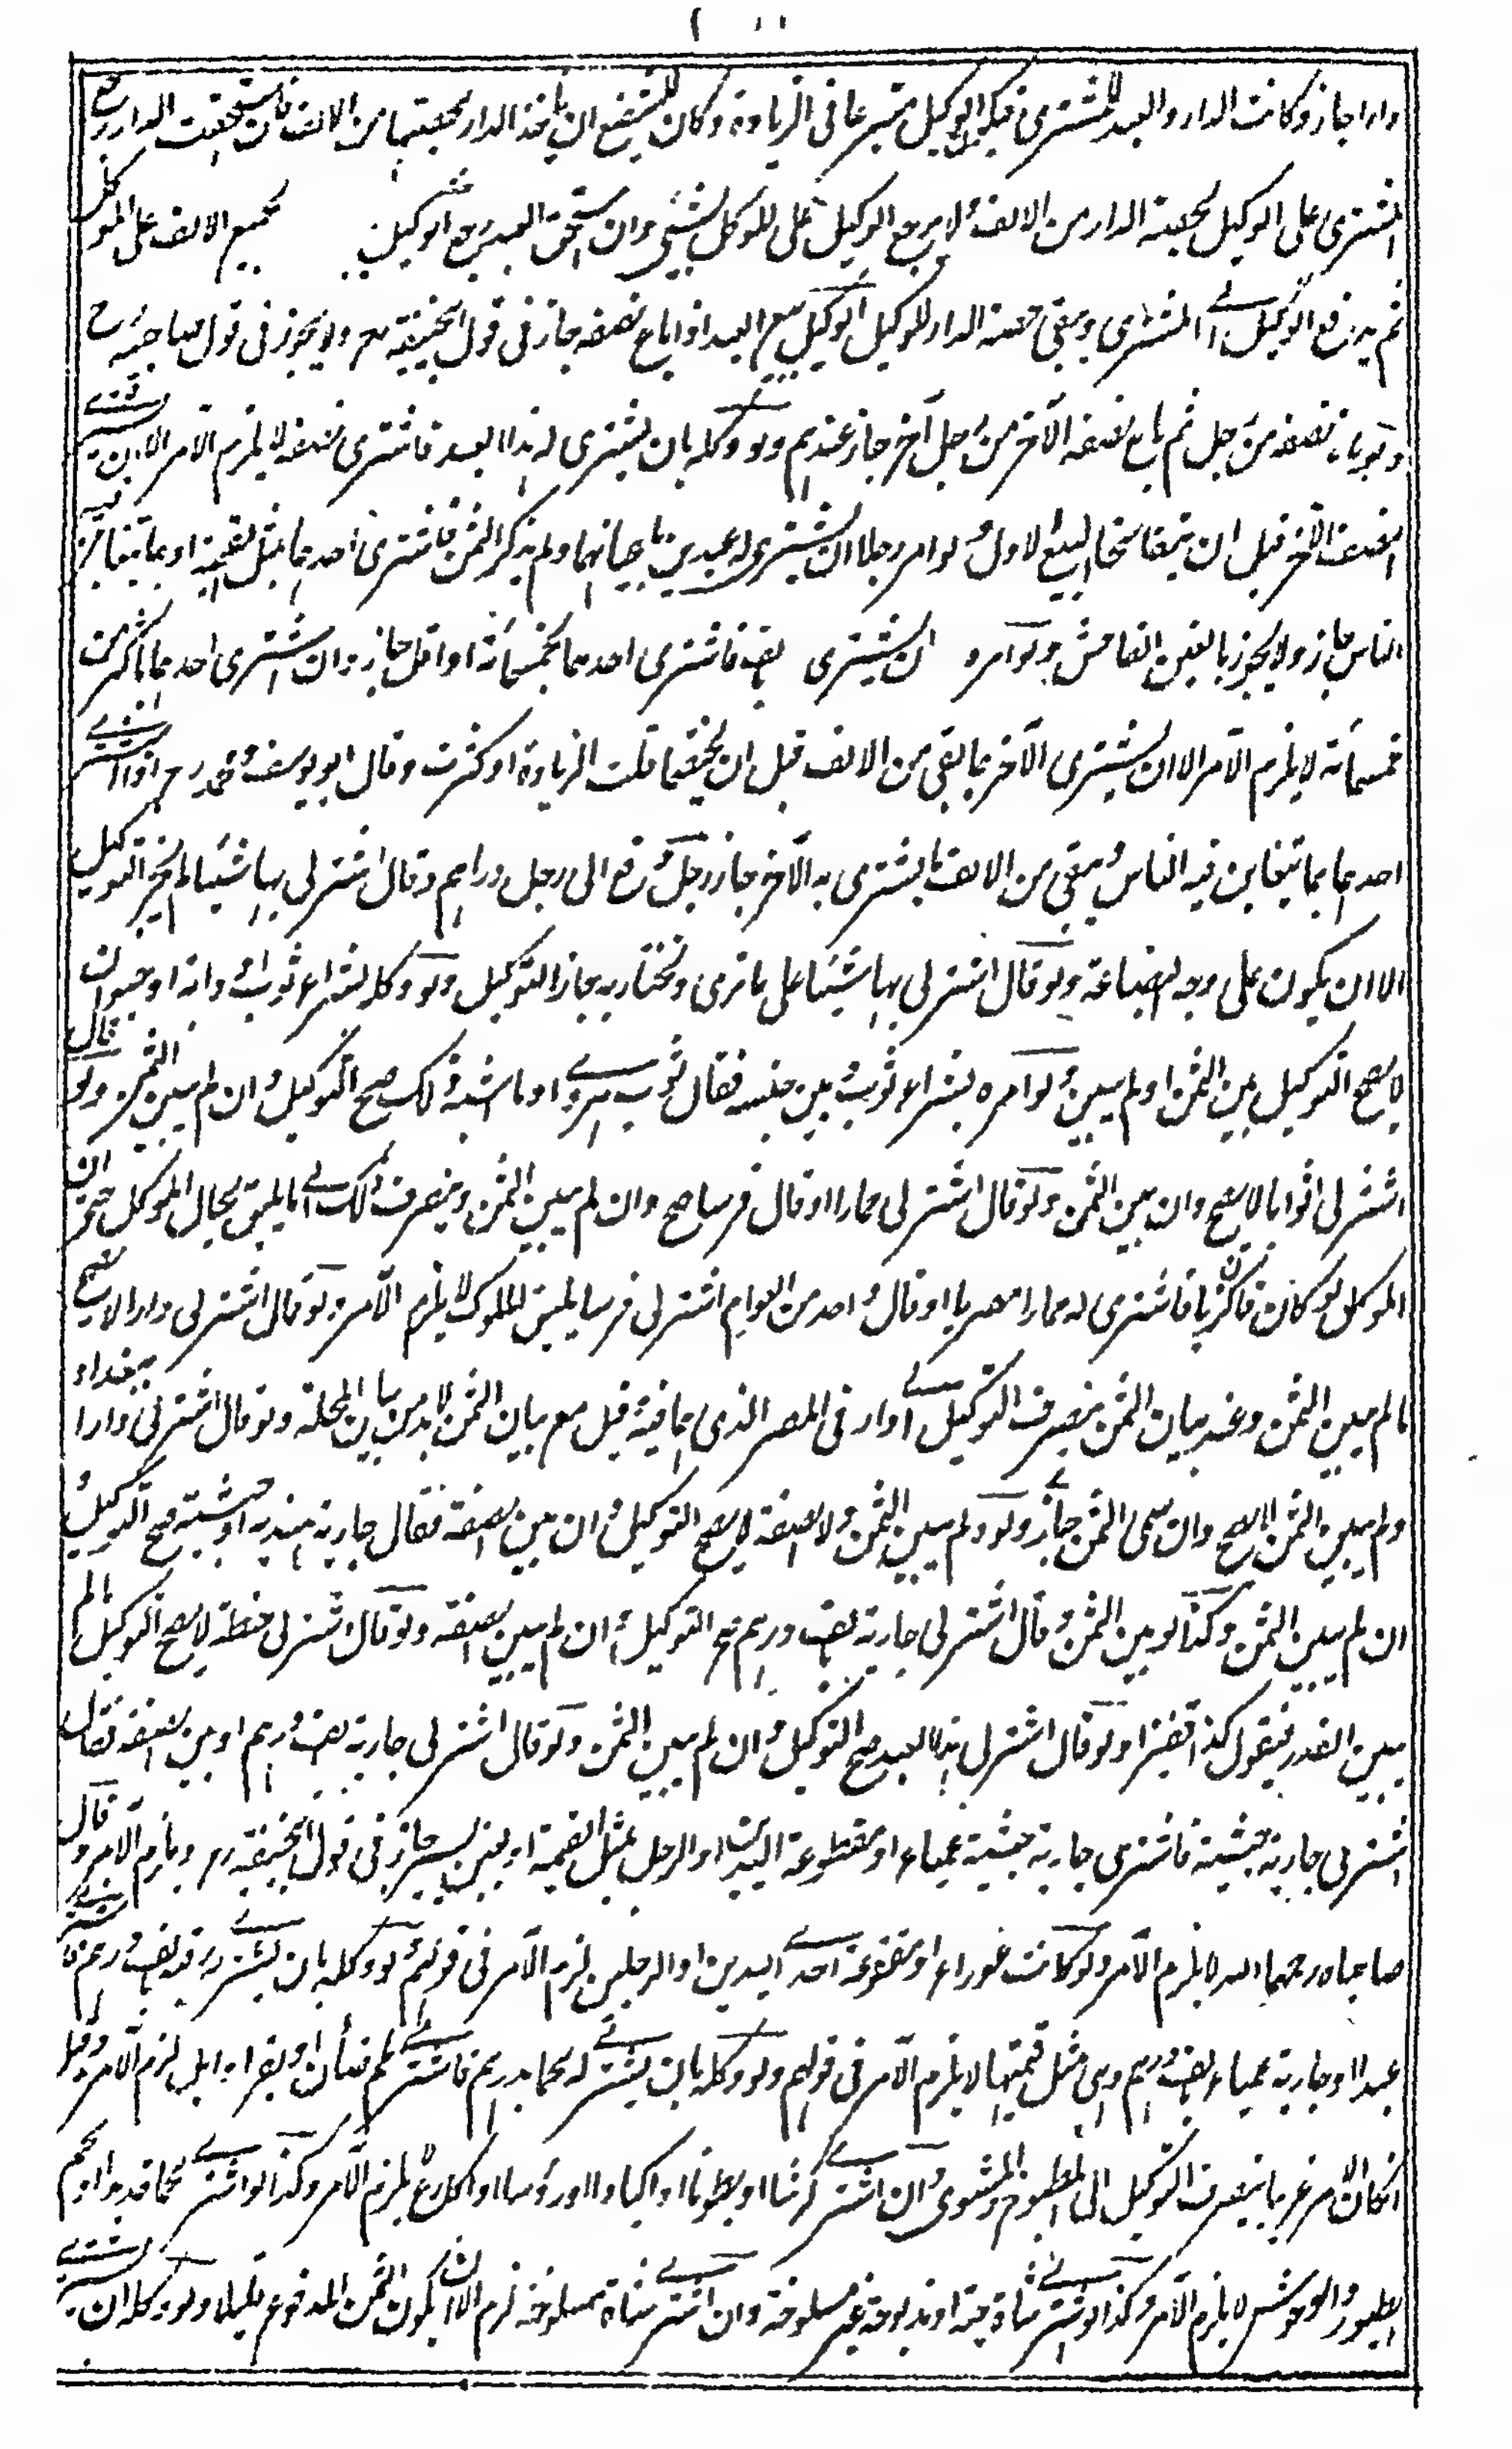 دارا جاز وكانت الدار والعبد للمشترى فيكون الوكيل متبرعا فى الزيادة وكان للشفيع ان ياخذ الدار بحصتها من الالف فان استحقت الدار رجع
المشترى على الوكيل بحصة الدار من الالف ولا يرجع الوكيل على الموكل بشئ وان استحق العبد يرجع الوكيل بجميع الالف على الموكل
ثم يدفع الوكيل الى المشترى ويبقى حصة الدار للوكيل الوكيل ببيع العبد اذا باع نصفه جاز فى قول ابيحنيفة رح ولا يجوز فى قول صاحبيه رح
ولو باع نصفه من رجل ثم باع نصفه الآخر من رجل آخر جاز عندهم ولو وكله بان يشترى له هذا العبد فاشترى نصفه لا يلزم الآمر الا ان يشترى
النصف الآخر قبل ان يتفاسخا البيع الاول ولو امر رجلا ان يشترى له عبدين باعيانهما ولم يذكر الثمن فاشترى احدهما بمثل القيمة او بما يتغابن
الناس جاز ولا يجوز بالغبن الفاحش ولو امره ان يشترى بالف فاشترى احدهما بخمسمائة او اقل جاز وان اشترى احدهما باكثر من
خمسمائة لا يلزم الآمر الا ان يشترى الآخر بما بقى من الالف قبل ان يختصما قلت الزيادة او كثرت وقال ابو يوسف ومحمد رح اذا اشترى
احدهما بما يتغابن فيه الناس وبقى من الالف ما يشترى به الآخر جاز رجل دفع الى رجل دراهم وقال اشتر لى بها شيئا لم يجز التوكيل
الا ان يكون على وجه البضاعة ولو قال اشتر لى بها شيئا على ما ترى وتختار به جاز التوكيل ولو وكله بشراء ثوب او دابة او حيوان
لا يصح التوكيل بين الثمن او لم يبين ولو امره بشراء ثوب وبين جنسه فقال ثوب هروى او ما اشبه ذلك صح التوكيل وان لم يبين الثمن ولو قال
اشتر لى اثوابا لا يصح وان بين الثمن ولو قال اشتر لى حمارا او قال فرسا صح وان لم يبين الثمن وينصرف ذلك الى ما يليق بحال الموكل حتى ان
الموكل لو كان فاكريا فاشترى له حمارا مصريا او قال واحد من العوام اشتر لى فرسا يليق للملوك لا يلزم الآمر ولو قال اشتر لى دارا لا يصح
ما لم يبين الثمن وعند بيان الثمن ينصرف التوكيل الى دار فى المصر الذى هما فيه وقيل مع بيان الثمن لا بد من بيان المحلة ولو قال اشتر لى دارا ببغداد
ولم يبين الثمن لا يصح وان سمى الثمن جاز ولو لم يبين الثمن ولا الصفة لا يصح التوكيل وان بين الصفة فقال جارية هندية او حبشية صح التوكيل و
ان لم يبين الثمن وكذا لو بين الثمن وقال اشتر لى جارية بالف درهم صح التوكيل وان لم يبين الصفة ولو قال اشتر لى حنطة لا يصح التوكيل ما لم
يبين القدر فيقول كذا قفيزا ولو قال اشتر لى هذا العبد صح التوكيل وان لم يبين الثمن ولو قال اشتر لى جارية بالف درهم او بين الصفة فقال
اشتر لى جارية حبشية فاشترى جارية حبشية عمياء او مقطوعة اليدين او الرجل بمثل القيمة او بغبن يسير جاز فى قول ابيحنيفة رح ويلزم الآمر وقال
صاحباه رحمهما الله لا يلزم الآمر ولو كانت عوراء او مقطوعة احدى اليدين او الرجلين لزم الآمر فى قولهم ولو وكله بان يشترى رقبة بالف درهم فاشترى
عبدا او جارية عمياء بالف درهم وهى مثل قيمتها لا يلزم الآمر فى قولهم ولو وكله بان يشترى له لحما بدرهم فاشترى لحم ضأن او بقر او ابل لزم الآمر
ان كان الآمر غريبا ينصرف التوكيل الى المطبوخ والمشوى وان اشترى كرشا او بطونا او اكبادا او رؤسا او اكارع لا يلزم الآمر وكذا لو اشترى لحما قديدا او لحم
الطيور والوحوش لا يلزم الآمر وكذا لو اشترى شاة حية او مذبوحة غير مسلوخة وان اشترى شاة مسلوخة لزم الا ان يكون الثمن المدفوع قليلا ولو وكله ان يشترى